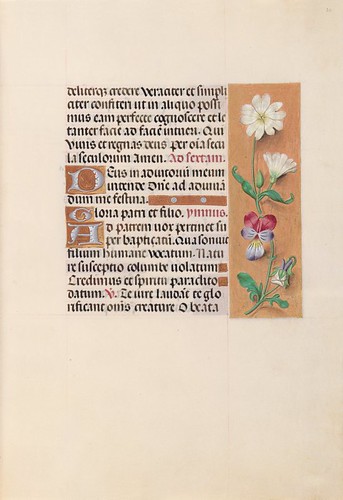 deliterq; credere veraciter et simpli
citer confiteri ut in aliquo possi
mus eam perfecte cognoscere et le
tanter facie ad faciē intueri. Qui
vivis et regnas deus per oīa secu
la seculorum amen. Ad sextam.
Deus in adiutorium meum
intende Dn̄e ad adiuvā
dum me festina.
Gloria patri et filio. ymnus.
Ad patrem vox pertinet su
per baptizatū. Qua sonuit
filium humane vocatum. Natu
re susceptio columbe violatum
Credimus et spiritū paraclito
datum. V. Te iure laudāt te glo
rificant om̄s creature O beata